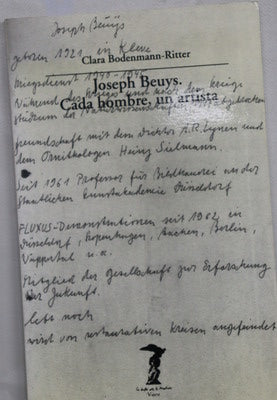 Joseph Beuys
geboren 1921 in Kleve
Clara Bodenmann-Ritter
Kriegsdienst 1940-1945
Joseph Beuys.
Während des Kriegs und nach dem Kriege
Cada hombre, un artista
Studium der Naturwissenschaft
Freundschaft mit dem Dichter A.R. Lynen und
dem Ornithologen Heinz Sielmann.
Seit 1961 Professor für Bildhauerei an der
Staatlichen Kunstakademie Düsseldorf
FLUXUS-Demonstrationen seit 1962 in
Düsseldorf, Kopenhagen, Aachen, Berlin,
Wuppertal u.a.
Mitglied der Gesellschaft zur Erforschung
der Zukunft.
lebt noch
wird von restaurativen Kreisen angefeindet
la balsa de la Medusa
Visor